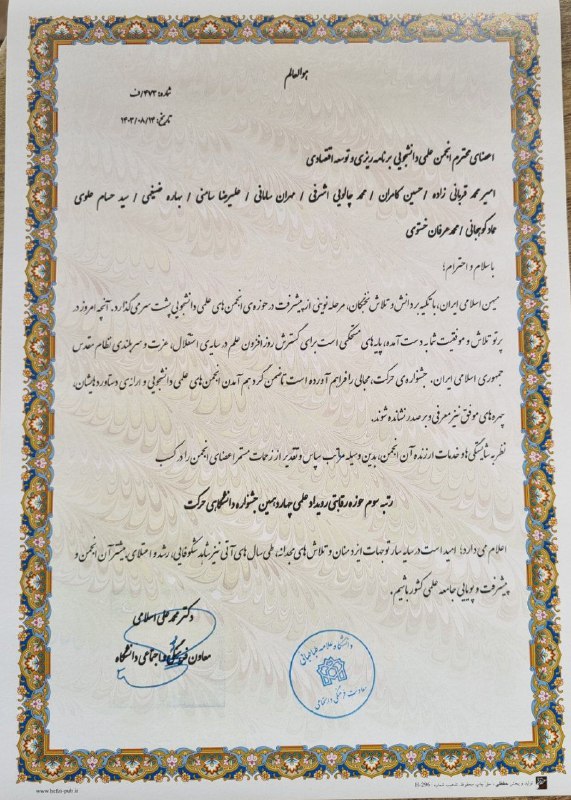 هوالعالم
شماره: ۴۷۳/ف
تاریخ: ۱۴۰۳/۰۸/۱۴
اعضای محترم انجمن علمی دانشجویی برنامه ریزی و توسعه اقتصادی
امیر محمد قربانی زاده / حسین کامران / محمد چالویی اشرفی / مهران سامانی / علیرضا سامنی / بهاره ضیغمی / سید حسام علوی
عماد کوهجانی / محمدعرفان خستوی
با سلام و احترام؛
میهن اسلامی ایران، با تکیه بر دانش و تلاش نخبگان، مرحله نوینی از پیشرفت در حوزه‌ی انجمن های علمی دانشجویی پشت سر می گذارد. آنچه امروز در
پرتو تلاش و موفقیت شما به دست آمده، پایه های مستحکمی است برای گسترش روز افزون علم در سایه ی استقلال، عزت و سربلندی نظام مقدس
جمهوری اسلامی ایران. جشنواره ی حرکت، مجالی را فراهم آورده است تا ضمن گرد هم آمدن انجمن های علمی دانشجویی و ارائه ی دستاوردهایشان،
چهره های موفق نیز معرفی و بر صدر نشانده شوند.
نظر به شایستگی ها و خدمات ارزنده آن انجمن، بدین وسیله مراتب سپاس و تقدیر از زحمات مستمر اعضای انجمن را در کسب
رتبه سوم حوزه رقابتی رویداد علمی چهاردهمین جشنواره دانشگاهی حرکت
اعلام می دارد؛ امید است در سایه سار توجهات ایزد منان و تلاش های مجدانه، طی سال های آتی نیز شاهد شکوفایی، رشد و اعتلای بیشتر آن انجمن و
پیشرفت و پویایی جامعه علمی کشور باشیم.
دکتر محمد علی اسلامی
معاون فرهنگی و اجتماعی دانشگاه
دانشگاه علامه طباطبائی
معاونت فرهنگی و اجتماعی
www.hefzi-pub.ir
تولید و پخش حفظی - حق چاپ محفوظ. تذهیب شماره: H-296